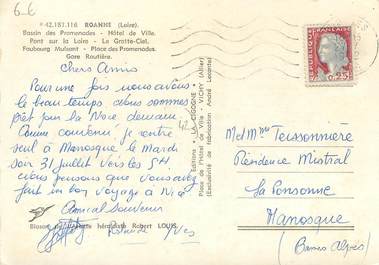 6-E
42.187.116 ROANNE (Loire).
Bassin des Promenades - Hôtel de Ville.
Pont sur la Loire - Le Gratte-Ciel.
Faubourg Mulsant - Place des Promenades.
Gare Routière.
Chers Amis
Pour une fois nous avons
le beau temps et nous sommes
prêt pour la Noce demain
Comme convenu je rentre
seul à Manosque le Mardi
soir 31 Juillet Vers les 5H
ciois pensons que vous avez
fait un bon voyage à Nice
Amical Souvenir
Yves
Blason de Robert LOUIS.
Editions "LA CIGOGNE"
Place de l'Hôtel de Ville - VICHY (Allier)
(Exclusivité de fabrication André Leconte)
REPUBLIQUE FRANÇAISE
0,25F
Md Mme Teissonnière
Résidence Mistral
La Ponsonne
Manosque
(Basses Alpes)